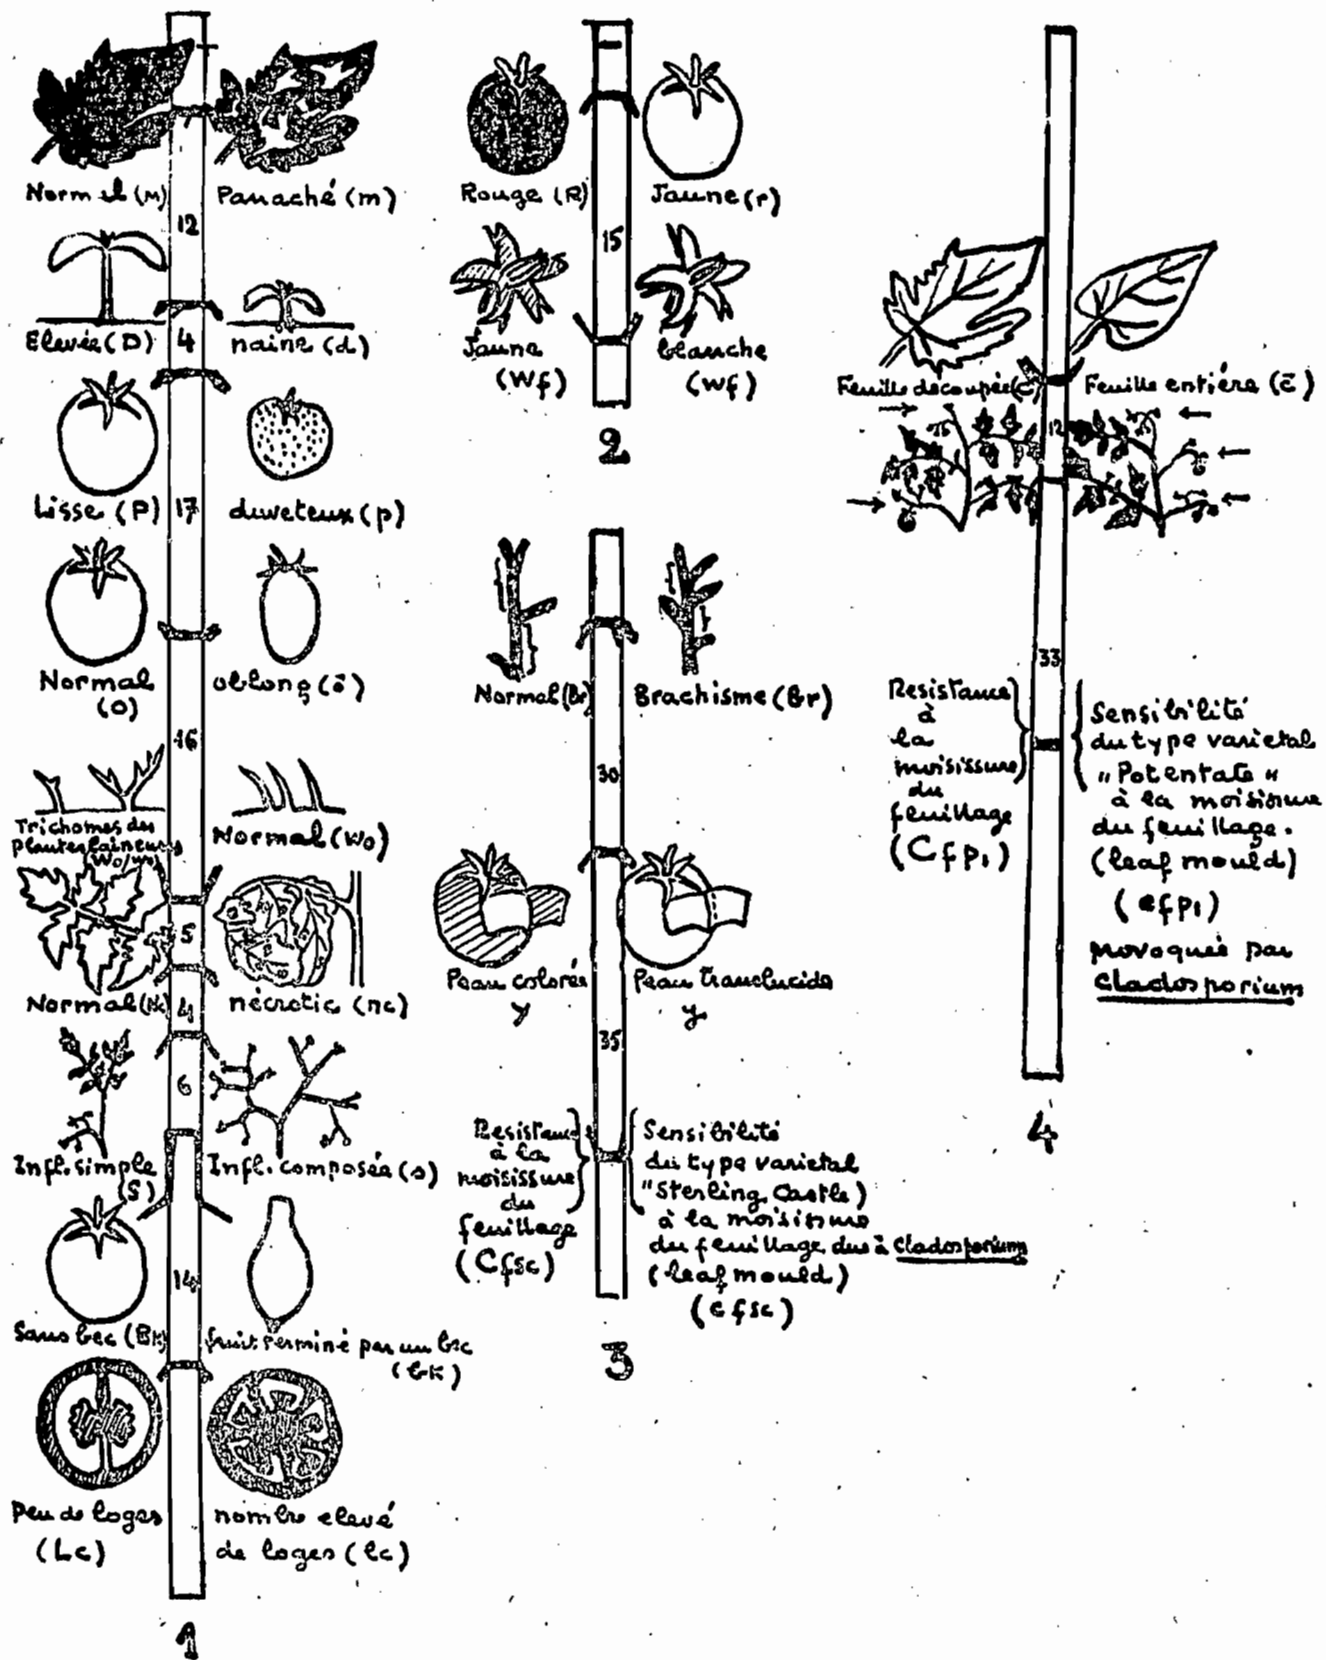 Normal (M)
Panaché (m)
12
Elevée (D)
4
naine (d)
Lisse (P)
17
duveteux (p)
Normal
(O)
oblong (o)
16
Trichomes des
plantes laineuses
(Wo/wo)
Normal (Wo)
5
Normal (Nc)
4
nécrotic (nc)
6
Infl. simple
(S)
Infl. composée (s)
14
Sans bec (Bk)
fruit terminé par un bec
(bk)
Peu de loges
(Lc)
nombre elevé
de loges (lc)
1
Rouge (R)
Jaune (r)
15
Jaune
(Wf)
blanche
(wf)
2
Normal (Br)
Brachisme (br)
30
Peau colorée
y
Peau translucide
y
35
Resistance
à la
moisissure
du
feuillage
(Cfsc)
Sensibilité
du type varietal
"Sterling Castle)
à la moisissure
du feuillage due à Cladosporium
(leaf mould)
(cfsc)
3
Feuille découpée (c)
Feuille entiére (c)
12
33
Resistance
à
la
moisissure
du
feuillage
(Cfp1)
Sensibilité
du type varietal
"Potentate"
à la moisissure
du feuillage.
(leaf mould)
(cfp1)
provoquée par
Cladosporium
4